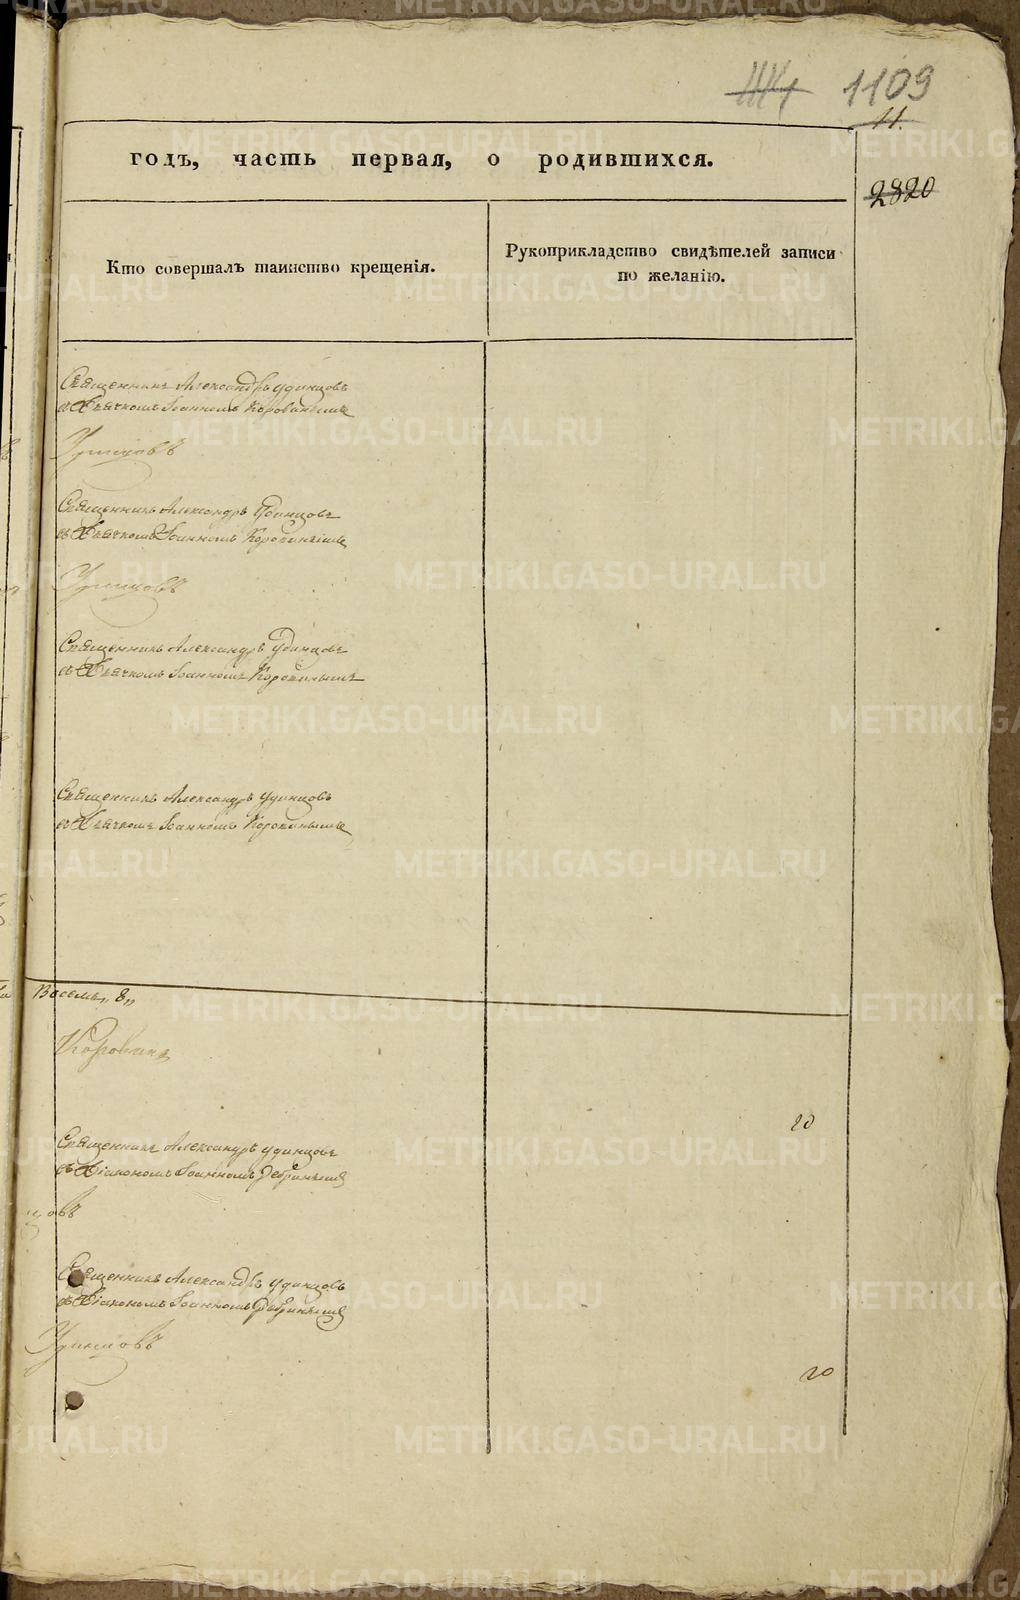 1109
11.
годъ, часть первая, о родившихся.
2820
Кто совершалъ таинство крещенія.
Рукоприкладство свидѣтелей записи
по желанію.
Священникъ Александръ Удинцовъ
съ Дьячкомъ Іоанномъ Коровинымъ
Удинцовъ
Священникъ Александръ Удинцовъ
съ Дьячкомъ Іоанномъ Коровинымъ
Удинцовъ
Священникъ Александръ Удинцовъ
съ Дьячкомъ Іоанномъ Коровинымъ
Священникъ Александръ Удинцовъ
съ Дьячкомъ Іоанномъ Коровинымъ
Восемь „8„
Коровинъ
20
Священникъ Александръ Удинцовъ
съ Діакономъ Іоанномъ
цовъ
Священникъ Александръ Удинцовъ
съ Діакономъ Іоанномъ
Удинцовъ
20
METRIKI.GASO-URAL.RU